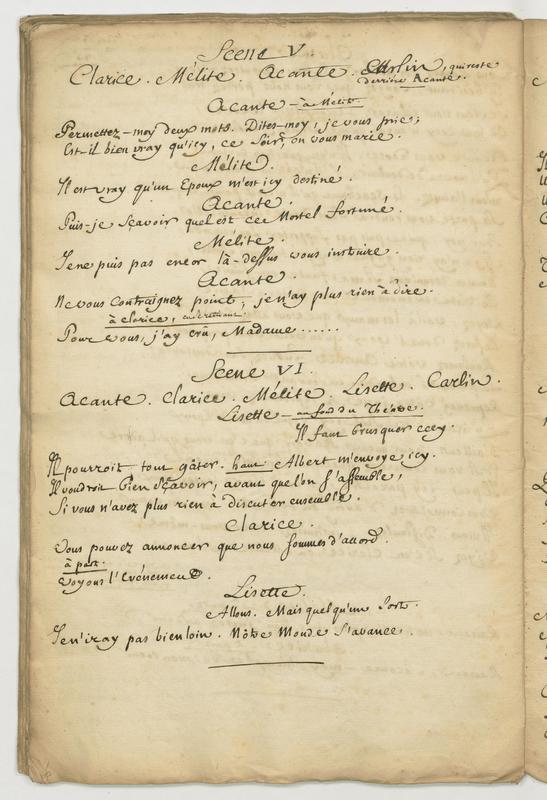 Scene V
Clarice. Mélite. Acante. Carlin, qui reste
derrière Acante.
Acante – à Mélite.
Permettez-moy deux mots. Dites-moy, je vous prie;
Est-il bien vray qu'icy, ce soir, on vous marie.
Mélite.
Il est vray qu'un Epoux m'est icy destiné.
Acante.
Puis-je sçavoir quel est ce Mortel fortuné.
Mélite.
Je ne puis pas encor là-dessus vous instruire.
Acante.
Ne vous contraignez point, je n'ay plus rien à dire.
à Clarice,
Pour vous, j'ay crû, Madame......
Scene VI.
Acante. Clarice. Mélite. Lisette. Carlin.
Lisette – au fond du Théatre.
Il faut brusquer cecy.
Il pourroit tout gâter. haut Albert m'envoye icy.
Il voudroit bien sçavoir, avant que l'on s'assemble,
Si vous n'avez plus rien à discuter ensemble.
Clarice.
Vous pouvez annoncer que nous sommes d'accord.
à part.
Voyons l'Evénement.
Lisette.
Allons. Mais quelqu'un sort.
Je n'iray pas bien loin. Nôtre Monde s'avance.